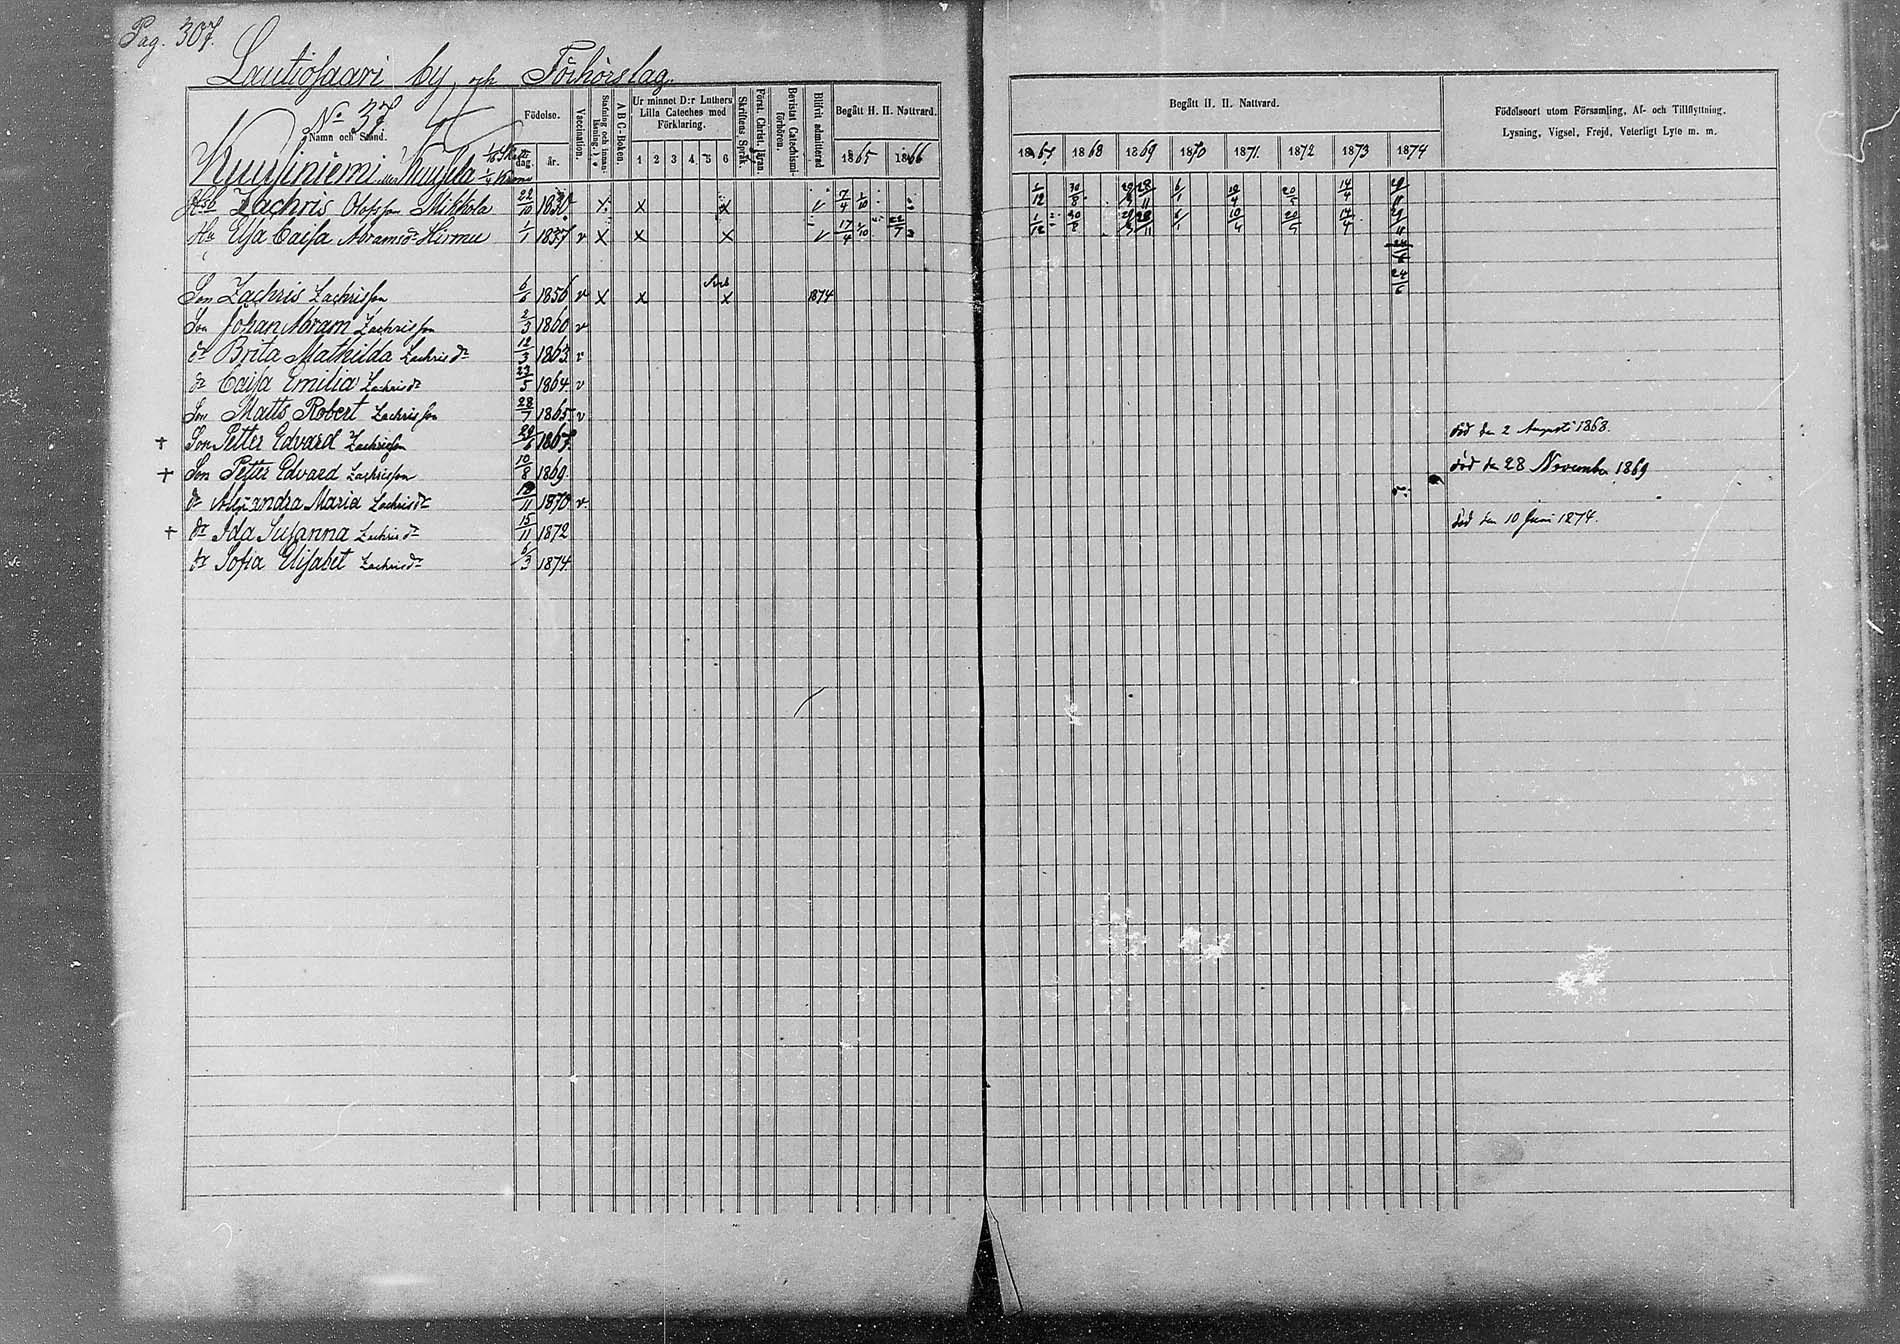 Pag. 307.
Lautiosaari by och Förhörslag.
No 37
Namn och Stånd.
Födelse.
dag. år.
Vaccination.
A B C-Boken.
Ur minnet D:r Luthers Lilla Cateches med Förklaring.
1 2 3 4 5 6
Skriftens Språk.
Bevistat Catechismi-förhören.
Blifvit admitterad
Begått H. H. Nattvard.
1865 1866
Begått H. H. Nattvard.
1867 1868 1869 1870 1871. 1872 1873 1874
Födelseort utom Församling, Af- och Tillflyttning,
Lysning, Vigsel, Frejd, Veterligt Lyte m. m.
Kuusiniemi Kuusela
Zachris Olofsson Mikkola 22/10
Hu Elsa Caisa Abramsdr Hirmu 1/1 1837 v x x x
Son Zachris Zachrisson 6/6 1856 v x x x 1874
Son Johan Abram Zachrisson 2/3 1860 v
dr Brita Mathilda Zachrisdr 12/3 1863 v
dr Caisa Emilia Zachrisdr 23/5 1864 v
Son Matts Robert Zachrisson 28/7 1865 v
+ Son Petter Edvard Zachrisson 29/6 1867 död den 2 Augusti 1868.
+ Son Petter Edvard Zachrisson 10/8 1869 död den 28 November 1869
dr Alexandra Maria Zachrisdr 1870 v
+ dr Ida Susanna Zachrisdr 15/11 1872 död den 10 Juni 1874.
dr Sofia Elisabet Zachrisdr 6/3 1874